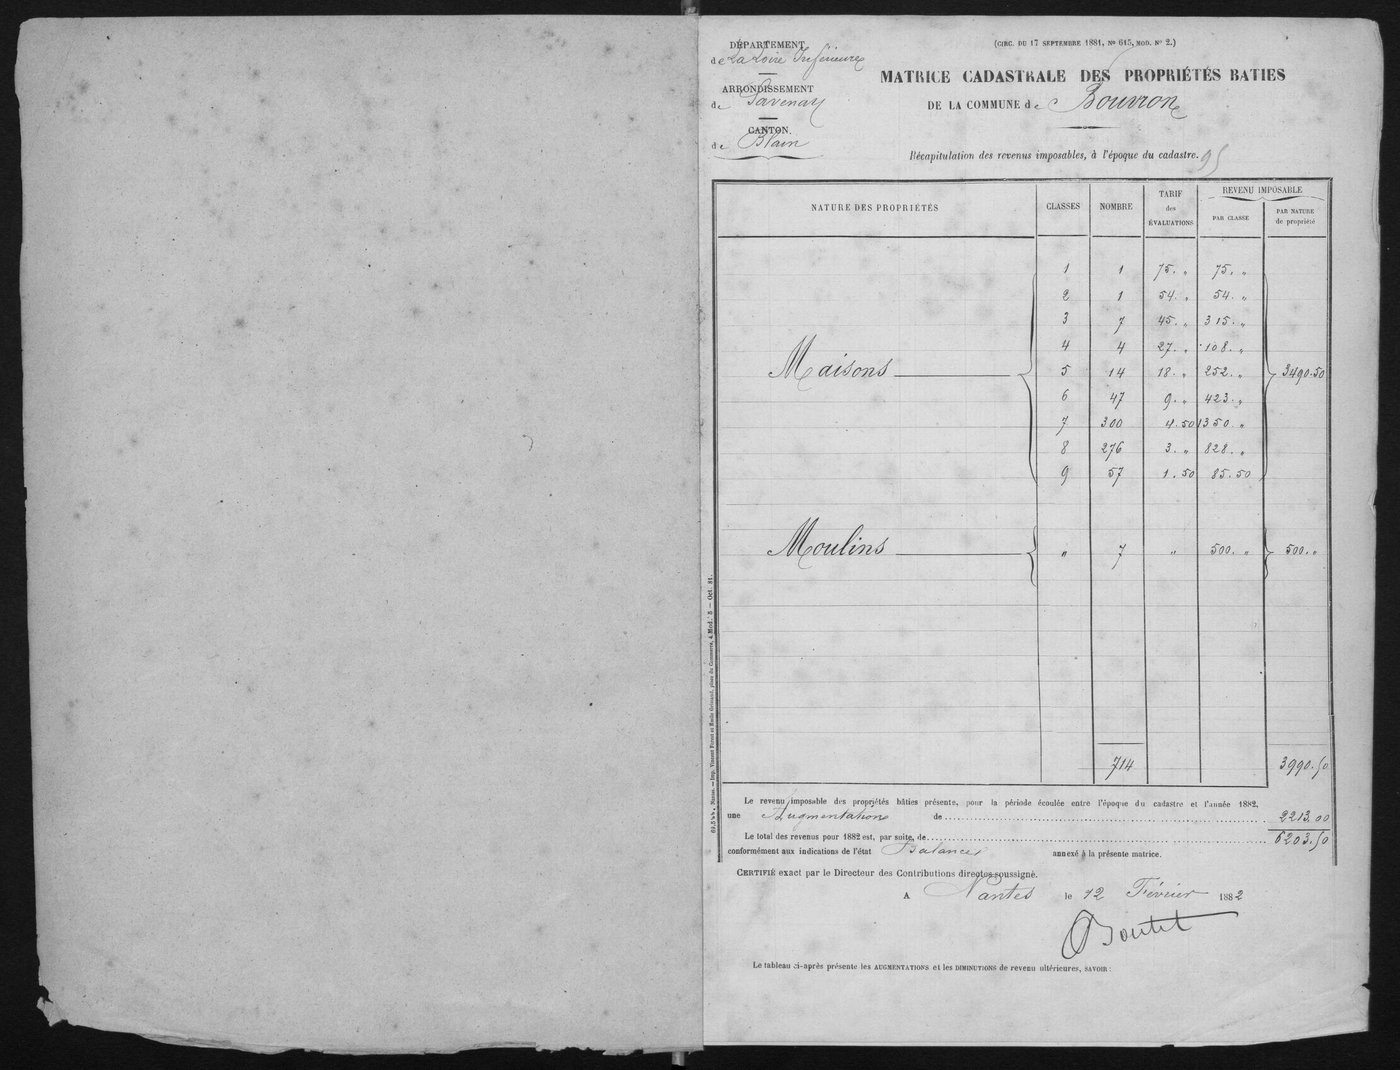 DÉPARTEMENT
de La Loire Inférieure
ARRONDISSEMENT
de Savenay
CANTON.
de Blain
(CIRC. DU 17 SEPTEMBRE 1881, No 615, MOD. No 2.)
MATRICE CADASTRALE DES PROPRIÉTÉS BATIES
DE LA COMMUNE de Bouvron
Récapitulation des revenus imposables, à l'époque du cadastre. 95
NATURE DES PROPRIÉTÉS CLASSES NOMBRE TARIF des ÉVALUATIONS REVENU IMPOSABLE PAR CLASSE PAR NATURE de propriété
1 1 75. „ 75. „
2 1 54. „ 54. „
3 7 45. „ 315. „
4 4 27. „ 108. „
Maisons 5 14 18. „ 252. „ 3490.50
6 47 9. „ 423. „
7 300 4.50 1350. „
8 276 3. „ 828. „
9 57 1.50 85.50
Moulins „ 7 „ 500. „ 500. „
714 3990.50
Le revenu imposable des propriétés bâties présente, pour la période écoulée entre l'époque du cadastre et l'année 1882,
une Augmentation de 2213.00
Le total des revenus pour 1882 est, par suite, de 6203.50
conformément aux indications de l'état Balance annexé à la présente matrice.
CERTIFIÉ exact par le Directeur des Contributions directes soussigné.
A Nantes le 12 Février 1882
Boutet
Le tableau ci-après présente les AUGMENTATIONS et les DIMINUTIONS de revenu ultérieures, SAVOIR :
Nantes. — Imp. Vincent Forest et Émile Grimaud, place du Commerce, 4. Mod. 5 — Oct. 81.